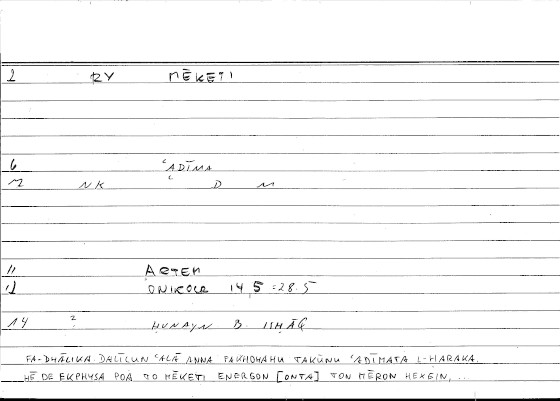 2 RY MĒKETI
6 ʿADĪMA
NK ʿ D M
11 ARTEM
12 ONIROCR 14,5 :28.5
14 ? ḤUNAYN B. ISḤĀQ
FA-DHĀLIKA DALĪLUN ʿALĀ ANNA TAKŪNU ʿADĪMATA L-HARAKA,
HĒ DE EKPHYSA POA TO MĒKETI ENERGON [ONTA] TON MĒRON HEKEIN, ...